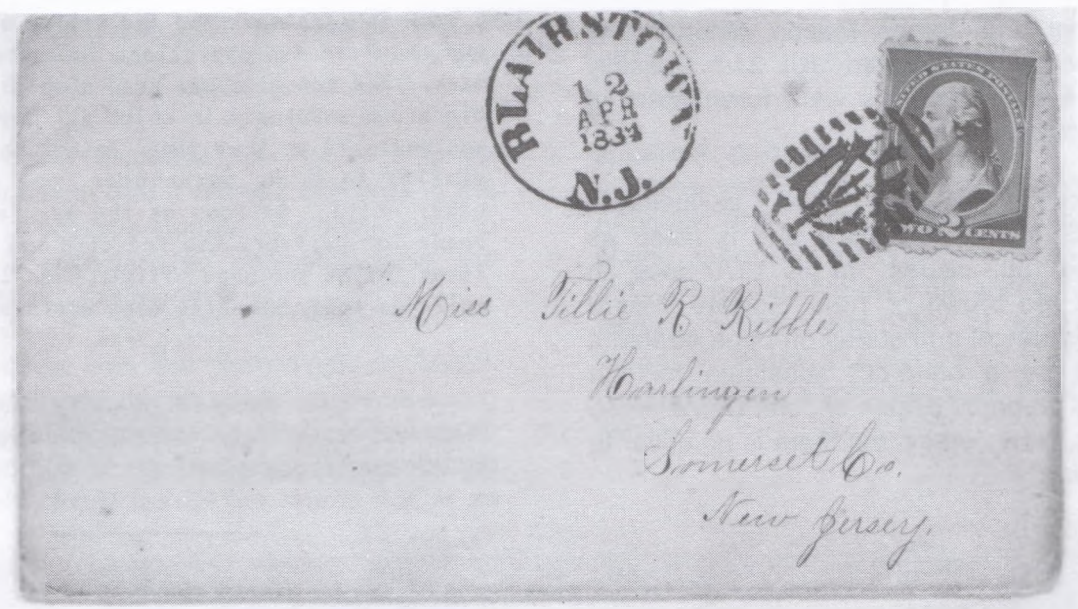 BLAIRSTOWN
12
APR
N.J.
UNITED STATES POSTAGE
TWO 2 CENTS
Miss Tillie R Ribble
Harlingen
Somerset Co.
New Jersey.